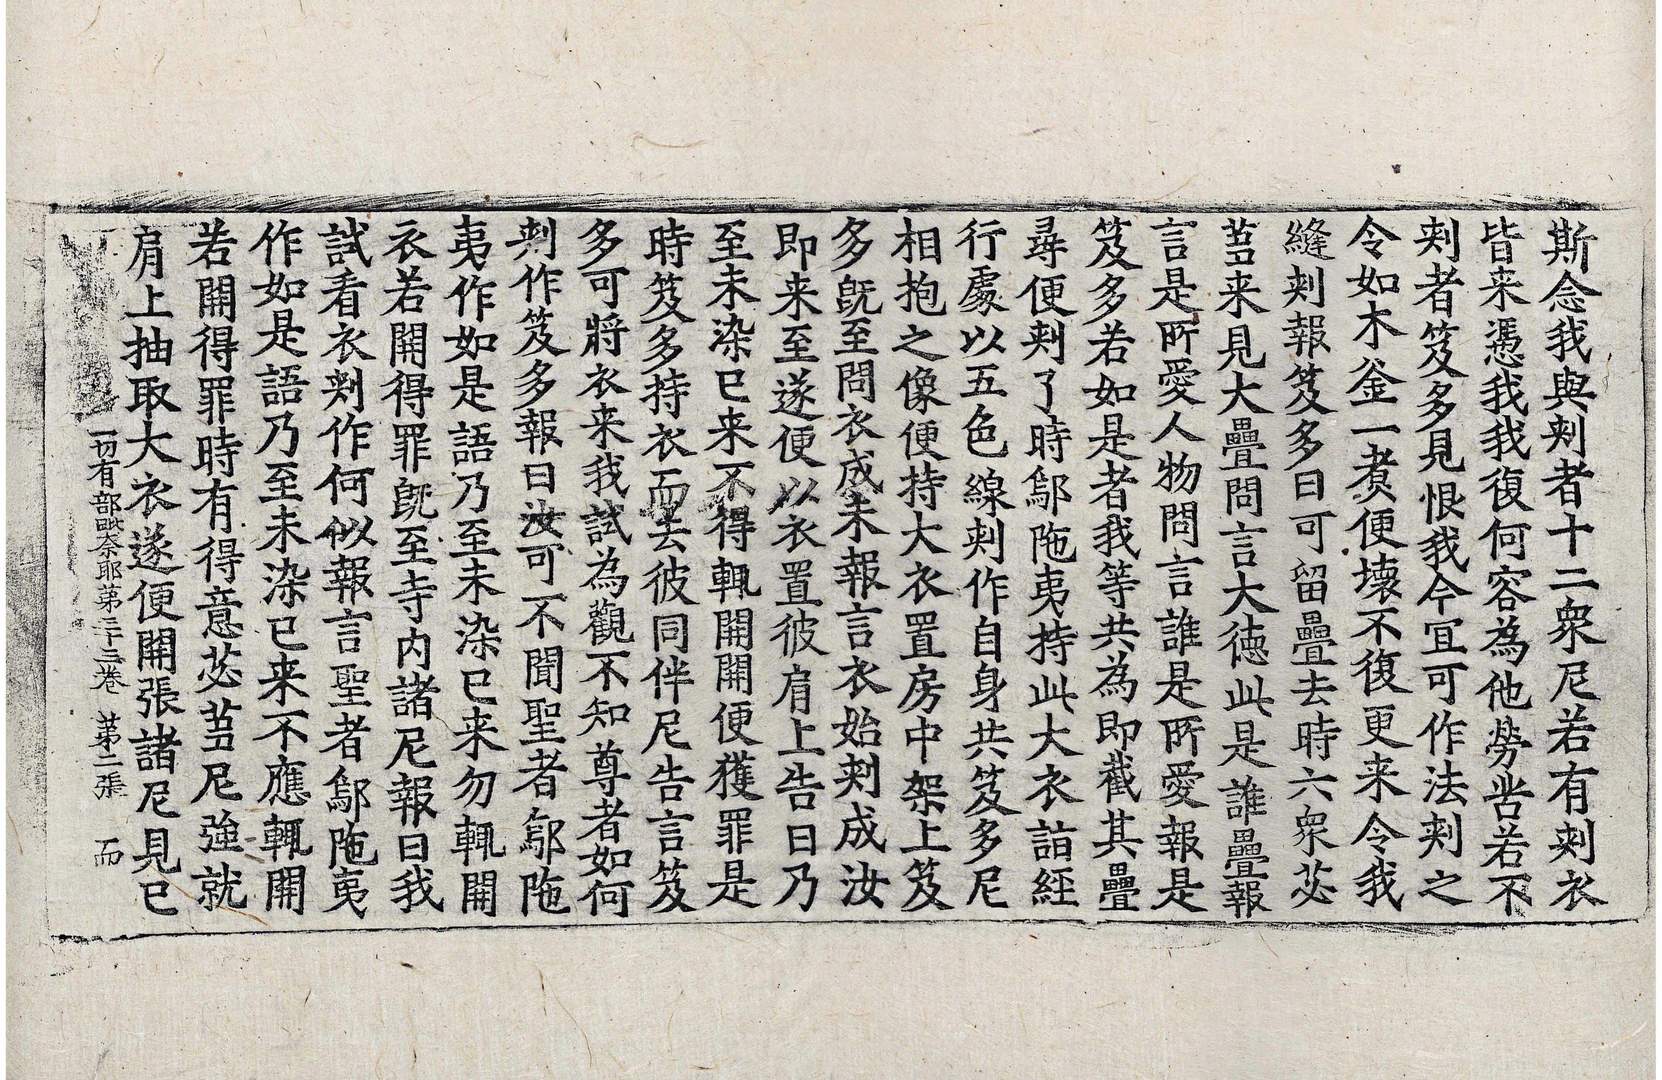 斯念我與刾者十二衆尼若有刾衣
皆来憑我我復何容為他勞苦若不
刾者笈多見恨我今冝可作法刾之
令如木釜一煑便壊不復更来令我
縫刾報笈多曰可留疊去時六衆苾
芻来見大疊問言大德此是誰疊報
言是所愛人物問言誰是所愛報是
笈多若如是者我等共為即截其疊
尋便刾了時鄔陁夷持此大衣詣経
行處以五色線刾作自身共笈多尼
相抱之像便持大衣置房中架上笈
多旣至問衣成未報言衣始刾成汝
即来至遂便以衣置彼肩上告曰乃
至未染已来不得輒開開便獲罪是
時笈多持衣而去彼同伴尼告言笈
多可將衣来我試為觀不知尊者如何
刾作笈多報曰汝可不聞聖者鄔陁
夷作如是語乃至未染已来勿輒開
衣若開得罪旣至寺内諸尼報曰我
試看衣刾作何似報言聖者鄔陁夷
作如是語乃至未染已来不應輒開
若開得罪時有得意苾芻尼強就
肩上抽取大衣遂便開張諸尼見已
一切有部毗奈耶第三十三卷 第二張 而